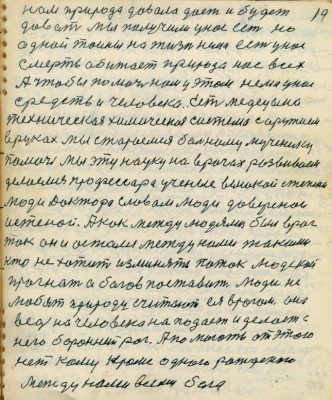 19
нам природа довала дает и будет
довать Мы получим у нас ест но
одной тайны на жизн нема Ест у нас
смерть абижает природа нас всех
А чтобы помоч нам у этом нема у нас
средств и человека. Ест медецина
техническая химическая система с оружием
в руках мы стараемся балному мученику
помоч Мы эту науку на врачах развиваем
делаемся професара ученые высокой степени
люди Доктора словам люди довереной
истеной. А как между людями был враг
так он и остался между нами такими
кто не хотит изминять паток людской
прогнат а багов поставит. Люди не
любят природу считают ея врагом она
вед на человека на подает и делает с
него бараний рог. А помогать от этого
нет кому Кроме одного рожденого
между нами всеми бога